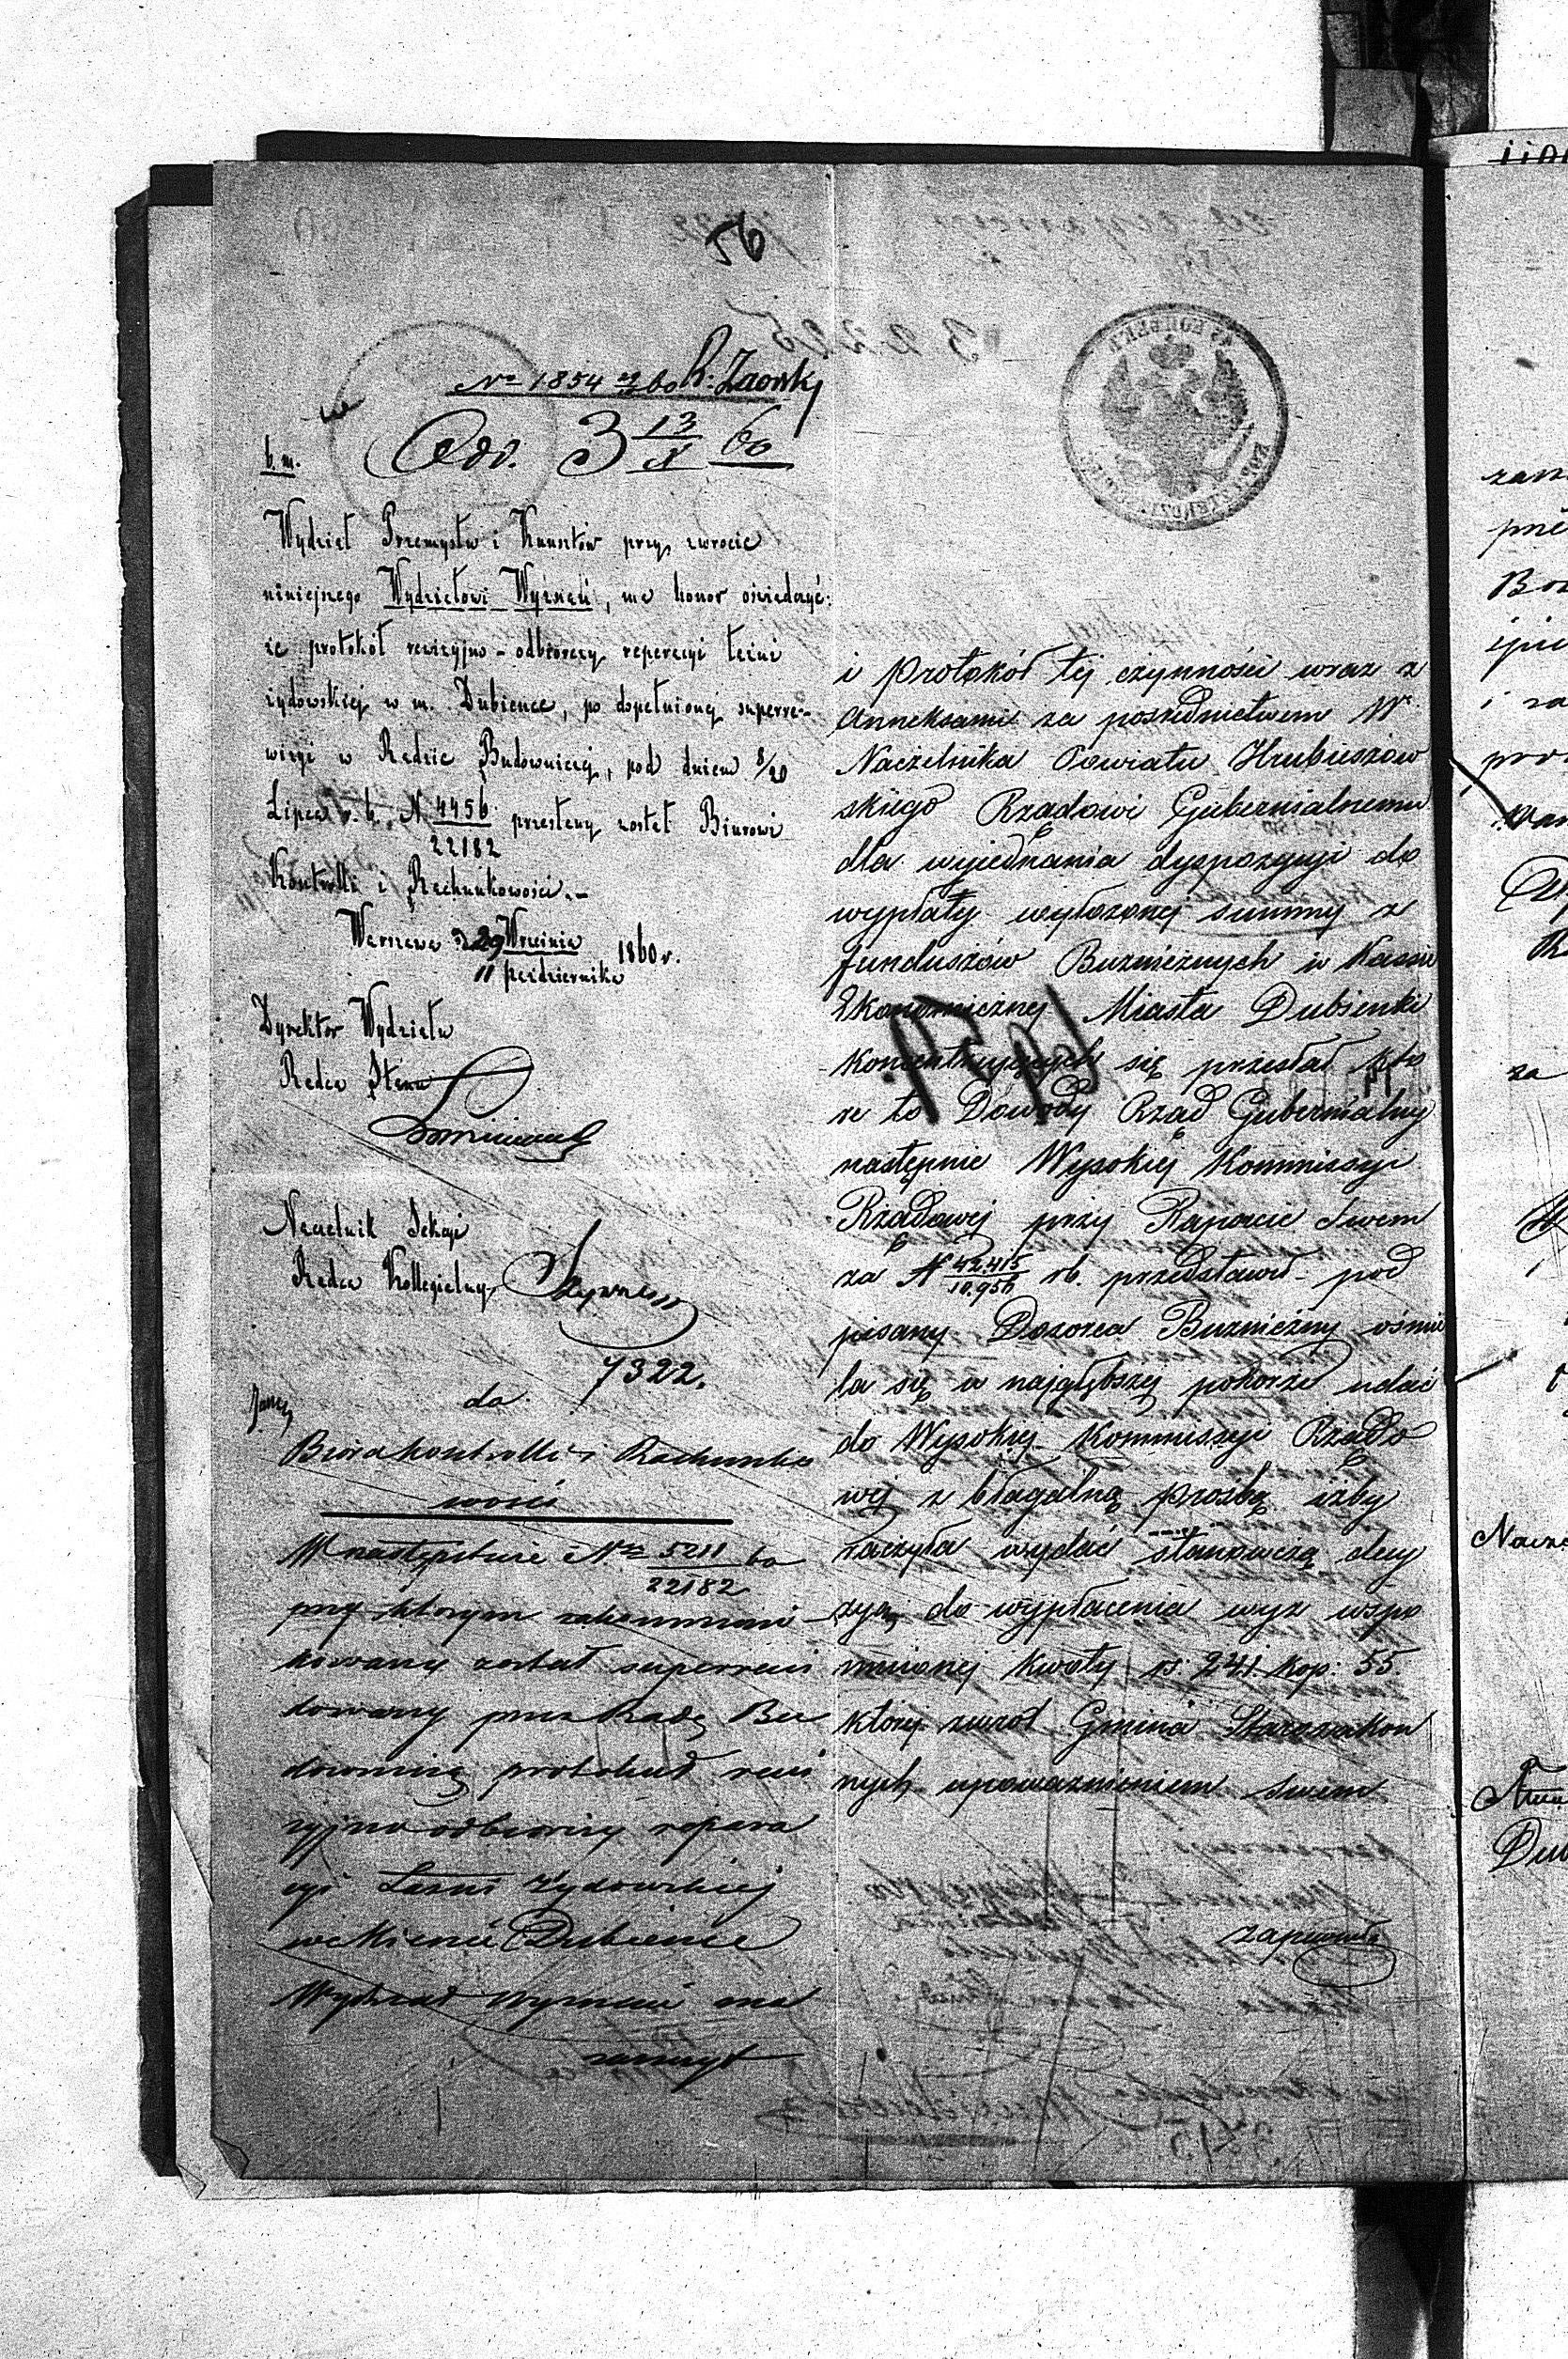 56
Nº 1854
Odd. 3 13/X 60
b. m.
Wydział Przemysłu i Kunsztów przy zwrocie
niniejszego Wydziałowi Wyznań, ma honor oświadczyć:
że protokół rewizyjno-odbiorczy reperacyi łaźni
żydowskiej w m. Dubience, po dopełnionej superre-
wizyi w Radzie Budowniczej, pod dniem 8/20
Lipca r. b. N. 4456/22182 przesłany został Biurowi
Kontrolli i Rachunkowości.-
Warszawa d. 29 Września/11 października 1860 r.
Dyrektor Wydziału
Radca Stanu
Naczelnik Sekcyi
Radca Kollegialny
7322.
do
Biura Kontrolli i Rachunko
wości
W następstwie Nru 5211/22182 60
przy którym zakommuni-
kowany został superrewi
dowany przez Radę Bu
downiczą protokuł rewi
zyjno odbiorczy repara
cyi Łazni Żydowskiej
w Mieście Dubience
Wydział Wyznań ma
zaszczyt
i Protokół tej czynności wraz z
Anneksami za pośrednictwem Wº
Naczelnika Powiatu Hrubieszow
skiego Rządowi Gubernialnemu
dla wyjednania dyspozycyi do
wypłaty wyłożonej summy z
funduszów Bużniczych w Kassie
Ekonomicznej Miasta Dubienki
koncentrujących się przesłał któ
re to Dowody Rząd Gubernialny
następnie Wysokiej Kommissyi
Rządowej przy Raporcie Swem
za N 42.415/10.956 rb. przedstawił – pod
pisany Dozorca Bużniczny ośmie
la się w najgłębszej pokorze udać
do Wysokiej Kommissyi Rządo
wej z błagalną prośbą iżby
raczyła wydać stanowczą decy
zyą do wypłacenia wyż wspo
mnionej kwoty rs. 241 kop: 55.
której zwrot Gmina Starozakon
nych upoważnieniem Swem
zapewniła